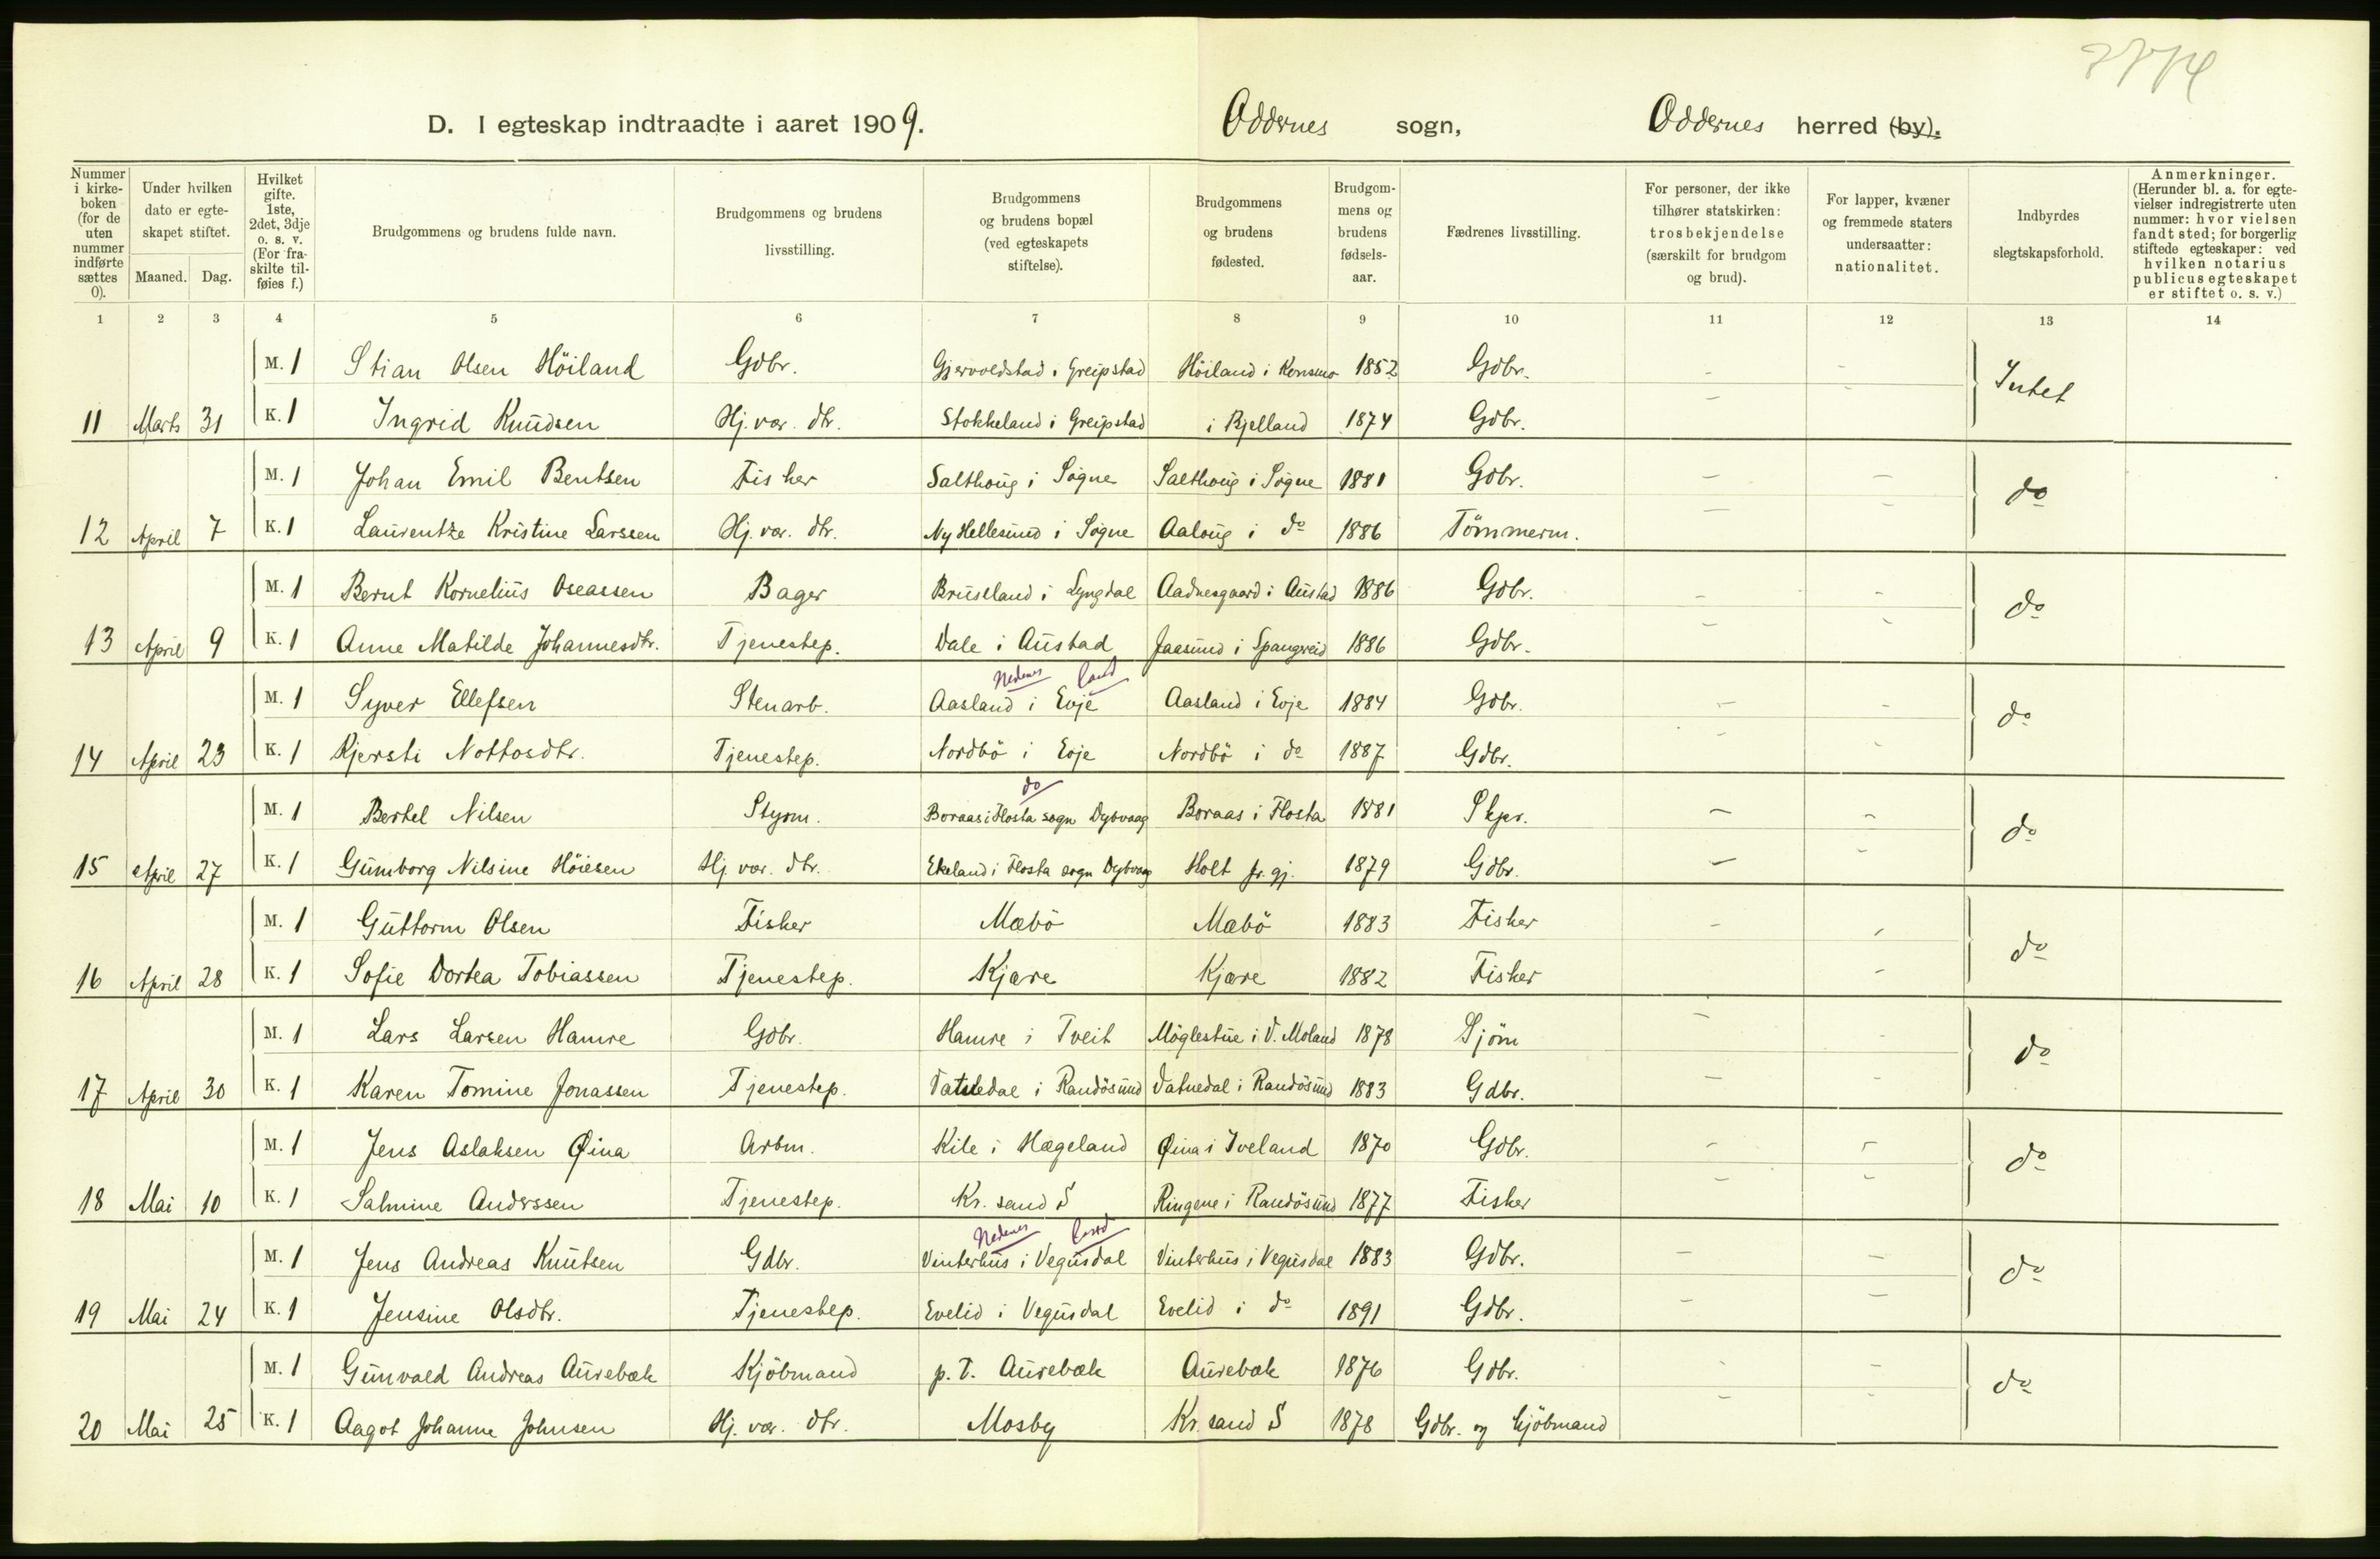 D. I egteskap indtraadte i aaret 1909. Oddernes sogn, Oddernes herred (by).
Nummer i kirke-boken (for de uten nummer indførte sættes 0). Under hvilken dato er egte-skapet stiftet. Maaned. Dag. Hvilket gifte. 1ste, 2det, 3dje o. s. v. (For fra-skilte til-føies f.) Brudgommens og brudens fulde navn. Brudgommens og brudens livsstilling. Brudgommens og brudens bopæl (ved egteskapets stiftelse). Brudgommens og brudens fødested. Brudgom-mens og brudens fødsels-aar. Fædrenes livsstilling. For personer, der ikke tilhører statskirken: trosbekjendelse (særskilt for brudgom og brud). For lapper, kvæner og fremmede staters undersaatter: nationalitet. Indbyrdes slegtskapsforhold. Anmerkninger. (Herunder bl. a. for egte-vielser indregistrerte uten nummer: hvor vielsen fandt sted; for borgerlig stiftede egteskaper: ved hvilken notarius publicus egteskapet er stiftet o. s. v.)
1 2 3 4 5 6 7 8 9 10 11 12 13 14
M. 1 Stian Olsen Höiland Gdbr. Gjervoldstad i Greipstad Höiland i Konsmo 1852 Gdbr. - - Intet
11 Marts 31 K. 1 Ingrid Knudsen Hj. vær. dtr. Stokkeland i Greipstad i Bjelland 1874 Gdbr. -
M. 1 Johan Emil Bentsen Fisker Salthoug i Sogne Salthoug i Sogne 1881 Gdbr. - - do
12 April 7 K. 1 Laurentze Kristine Larssen Hj. vær. dtr. Ny Hellesund i Sogne Aaloug i do 1886 Tömmerm. - -
M. 1 Bernt Kornelius Oseassen Bager Bruseland i Lyngdal Aadnesgaard i Austad 1886 Gdbr. - - do
13 April 9 K. 1 Anne Matilde Johannesdtr. Tjenestep. Dale i Austad Jaasund i Spangereid 1886 Gdbr. - -
Nedenes land
M. 1 Syver Ellefsen Stenarb. Aasland i Evje Aasland i Evje 1884 Gdbr. - - do
14 April 23 K. 1 Kjersti Nottosdtr. Tjenestep. Nordbö i Evje Nordbö i do 1887 Gdbr. - -
do
M. 1 Bertel Nilsen Styrm. Boraas i Flosta sogn Dybvaag Boraas i Flosta 1881 Skpr. - - do
15 April 27 K. 1 Gumborg Nilsine Höiesen Hj. vær. dtr. Ekeland i Flosta sogn Dybvaag Holt pr. gj. 1879 Gdbr. - -
M. 1 Guttorm Olsen Fisker Mæbö Mæbö 1883 Fisker - - do
16 April 28 K. 1 Sofie Dortea Tobiassen Tjenestep. Kjære Kjære 1882 Fisker -
M. 1 Lars Larsen Hamre Gdbr. Hamre i Tveit Möglestue i V. Moland 1878 Sjöm - - do
17 April 30 K. 1 Karen Tomine Jonassen Tjenestep. Vatnedal i Randösund Vatnedal i Randösund 1883 Gdbr. - -
M. 1 Jens Aslaksen Øina Arbm. Kile i Hægeland Øina i Iveland 1870 Gdbr. - - do
18 Mai 10 K. 1 Salmine Anderssen Tjenestep. Kr.sand S Ringene i Randösund 1877 Fisker - -
Nedenes land
M. 1 Jens Andreas Knutsen Gdbr. Vinterhus i Vegusdal Vinterhus i Vegusdal 1883 Gdbr. - - do
19 Mai 24 K. 1 Jensine Olsdtr. Tjenestep. Evelid i Vegusdal Evelid i do 1891 Gdbr. - -
M. 1 Gunvald Andreas Aurebæk Kjöbmand p. T. Aurebæk Aurebæk 1876 Gdbr. - - do
20 Mai 25 K. 1 Aagot Johanne Johnsen Hj. vær. dtr. Mosby Kr.sand S 1878 Gdbr. og kjöbmand - -